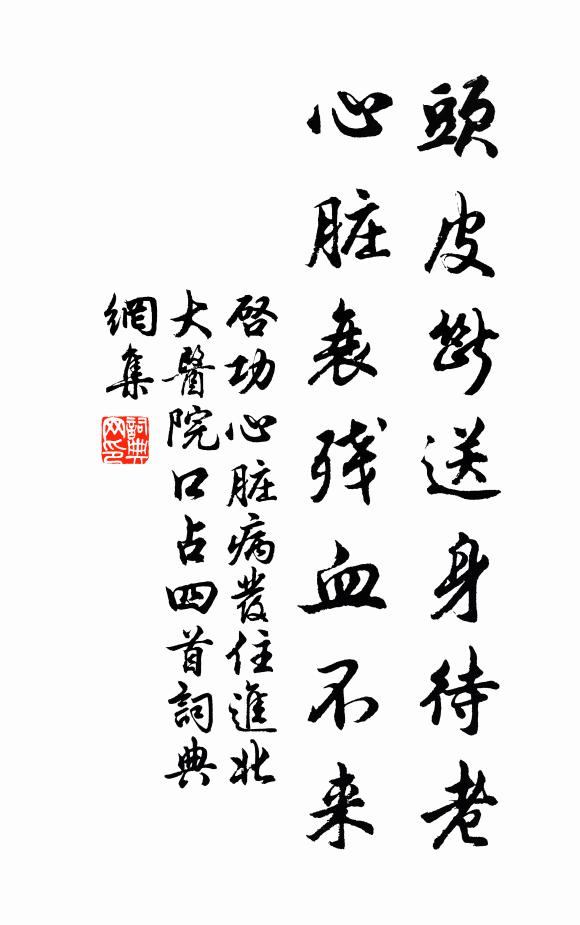 頭皮斷送身待老
心脏衰残血不来
啓功心脏病發住進北
大醫院口占四首詞典
網集
詞典网印